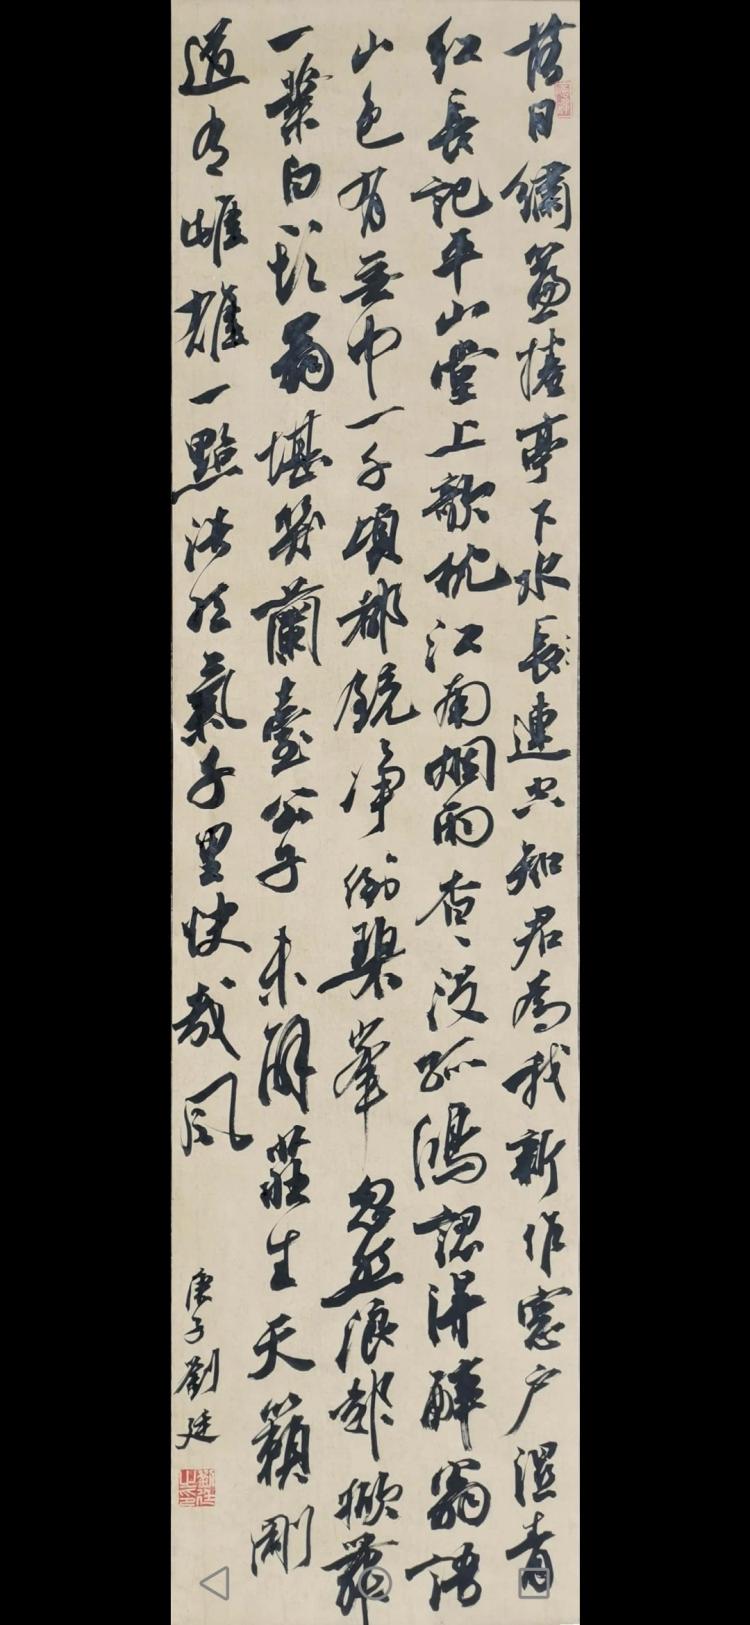 落日繡簾捲亭下水長連空知君為我新作窗户溼青
紅長記平山堂上欹枕江南烟雨杳杳沒孤鴻認得醉翁語
山色有無中一千頃都鏡淨倒碧峯忽然浪起掀舞
一葉白頭翁堪笑蘭臺公子未解莊生天籟剛
道有雌雄一點浩然氣千里快哉風
庚子劉廷